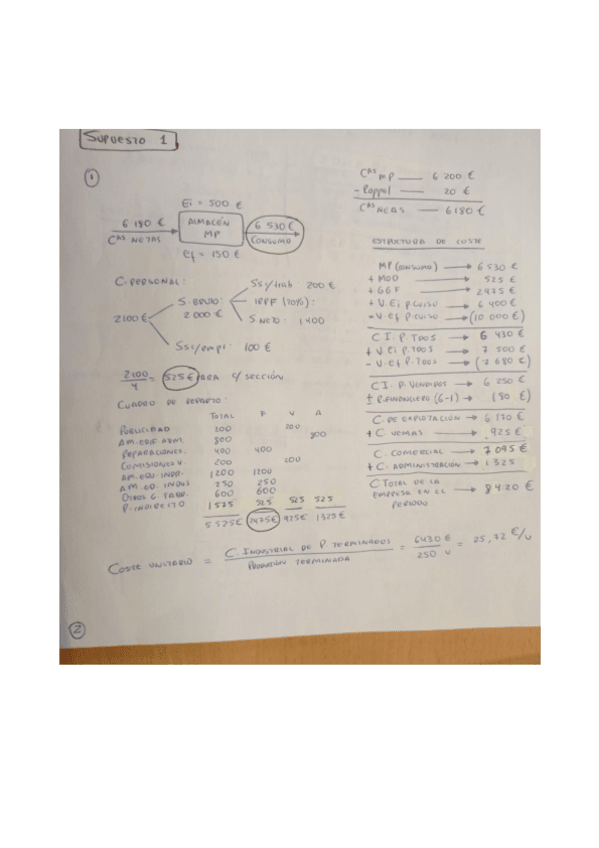 SUPUESTO 1
1
CAS MP — 6 200 €
- Rappel — 20 €
CAS NETAS — 6180 €
Ei = 500 €
6 180 €
CAS NETAS
ALMACÉN
MP
6 530 €
CONSUMO
Ef = 150 €
C. PERSONAL:
2100 €
S. BRUTO:
2 000 €
SSs/trab: 200 €
IRPF (20%):
S. NETO: 1400
SSs/empr: 100 €
2100/4 = 525 € PARA c/ SECCIÓN
CUADRO DE REPARTO:
TOTAL F V A
PUBLICIDAD 200 200
AM. EDIF. ADM. 800 800
REPARACIONES. 400 400
COMISIONES V. 200 200
AM. EDI. INDD. 1200 1200
AM EQ. INDUS 250 250
OTROS G. FABR. 600 600
P. INDIRECTO 1575 525 525 525
5 225 € 2975 € 925 € 1325 €
ESTRUCTURA DE COSTE
MP (CONSUMO) → 6 530 €
+ MOD → 525 €
+ GGF → 2975 €
+ V. Ei P. CURSO → 6 400 €
- V. Ef P. CURSO → (10 000 €)
C I. P. TDOS → 6 430 €
+ V. Ei P. TDOS → 7 500 €
- V. Ef P. TDOS → (7 680 €)
C I. P. VENDIDOS → 6 250 €
± P. FINANCIERO (6-1) → (80 €)
C. DE EXPLOTACIÓN → 6 170 €
+ C. VENTAS → 925 €
C. COMERCIAL → 7 095 €
+ C. ADMINISTRACIÓN → 1 325
C TOTAL DE LA
EMPRESA EN EL → 8 420 €
PERIODO
COSTE UNITARIO = C. INDUSTRIAL DE P TERMINADOS / PRODUCCIÓN TERMINADA = 6430 € / 250 u = 25,72 €/u
2